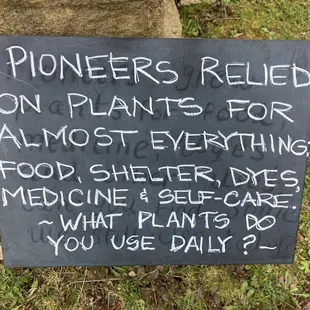 PIONEERS RELIED
ON PLANTS FOR
ALMOST EVERYTHING;
FOOD, SHELTER, DYES,
MEDICINE & SELF-CARE.
~ WHAT PLANTS DO
YOU USE DAILY? ~